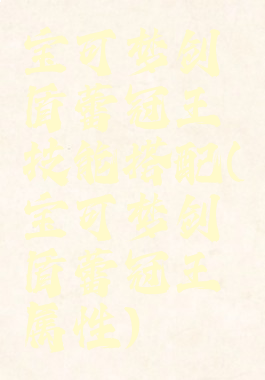 宝可梦剑
盾蕾冠王
技能搭配(
宝可梦剑
盾蕾冠王
属性)